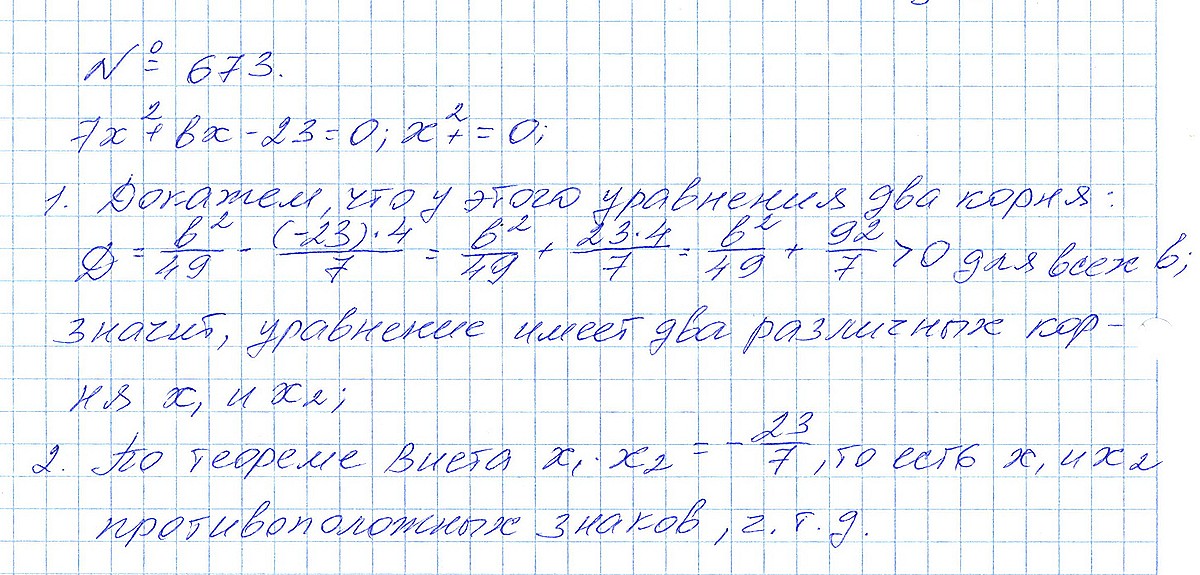 № 673.
7x² + bx - 23 = 0; x² + = 0;
1. Докажем, что у этого уравнения два корня:
Д = b²/49 - (-23)·4/7 = b²/49 + 23·4/7 = b²/49 + 92/7 > 0 для всех b;
значит, уравнение имеет два различных кор-
ня x₁ и x₂;
2. По теореме Виета x₁·x₂ = -23/7, то есть x₁ и x₂
противоположных знаков, ч.т.д.